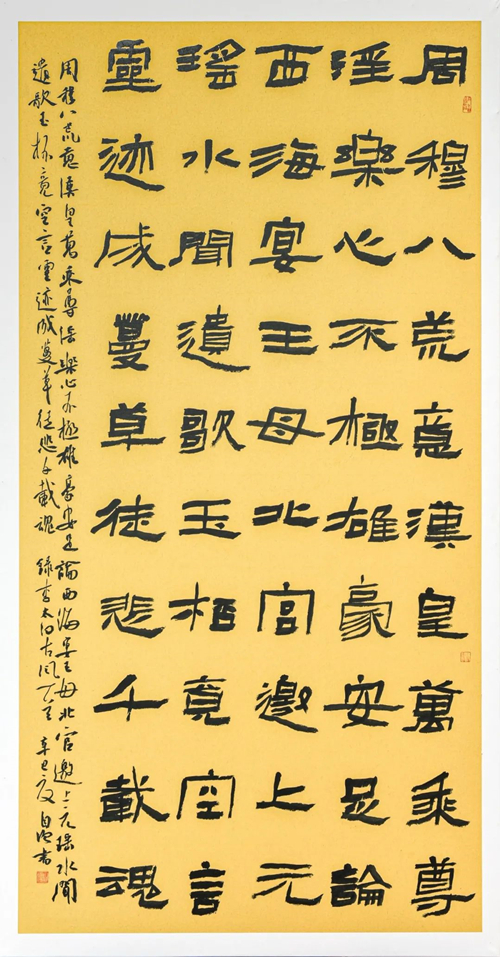 周穆八荒意漢皇萬乘尊
淫樂心不極雄豪安足論
西海宴王母北宮邀上元
瑤水聞遺歌玉杯竟空言
靈迹成蔓草徒悲千載魂
周穆八荒意漢皇萬乘尊淫樂心不極雄豪安足論西海宴王母北宮邀上元瑤水聞
遺歌玉杯竟空言靈迹成蔓草徒悲千載魂 錄李太白古風 辛巳夏 書